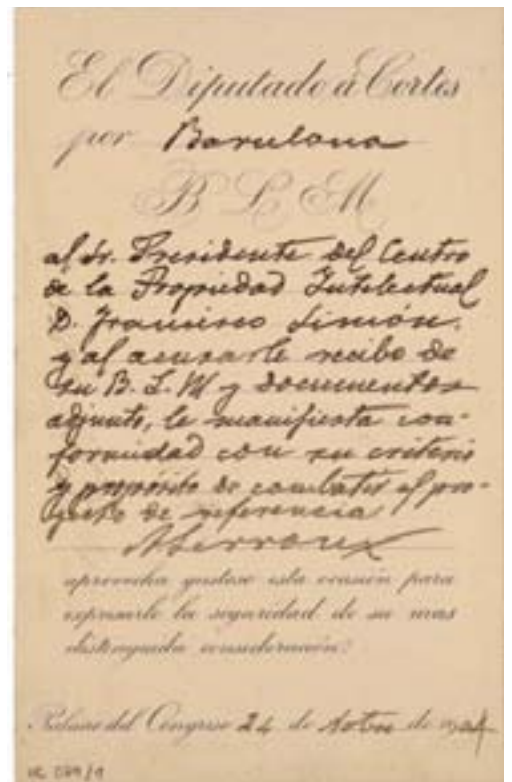 El Diputado à Cortes
por Barcelona
B L M
al Sr. Presidente del Centro
de la Propiedad Intelectual
D. Francisco Simón,
y al acusarle recibo de
su B. L. M y documentos
adjunto, le manifiesta con-
formidad con su criterio
y propósito de combatir el pro-
yecto de referencia
ALerroux
aprovecha gustoso esta ocasión para
expresarle la seguridad de su mas
distinguida consideración.
Palacio del Congreso 24 de de